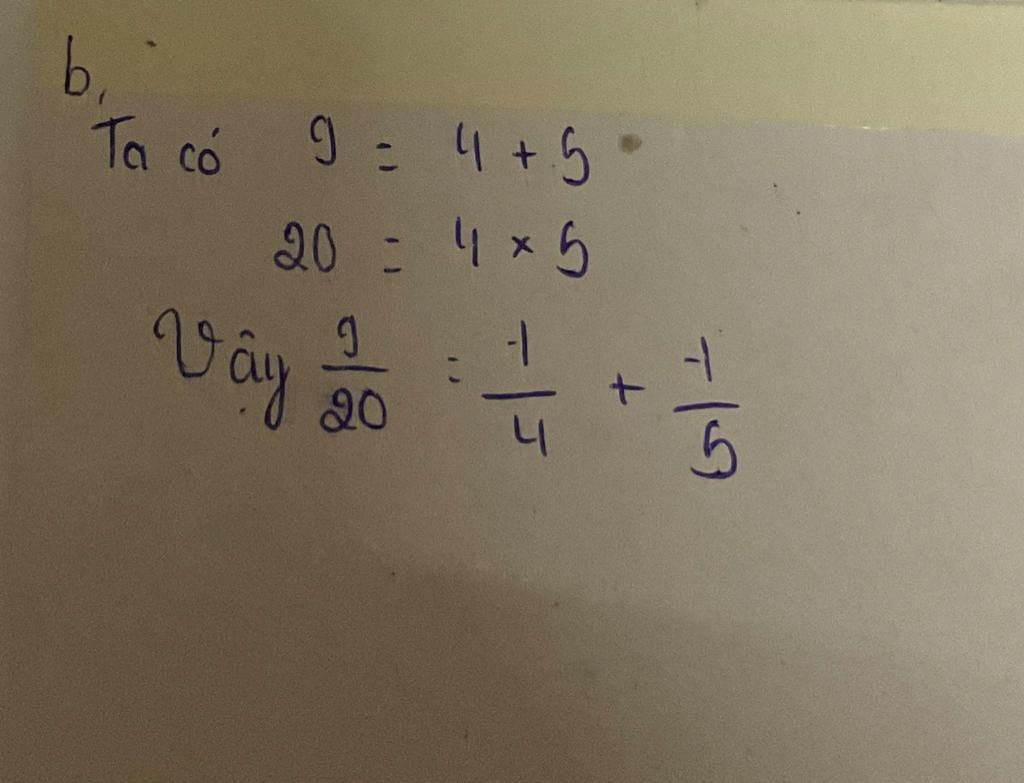 b,
Ta có 9 = 4 + 5
20 = 4 × 5
Vậy 9/20 = 1/4 + 1/5